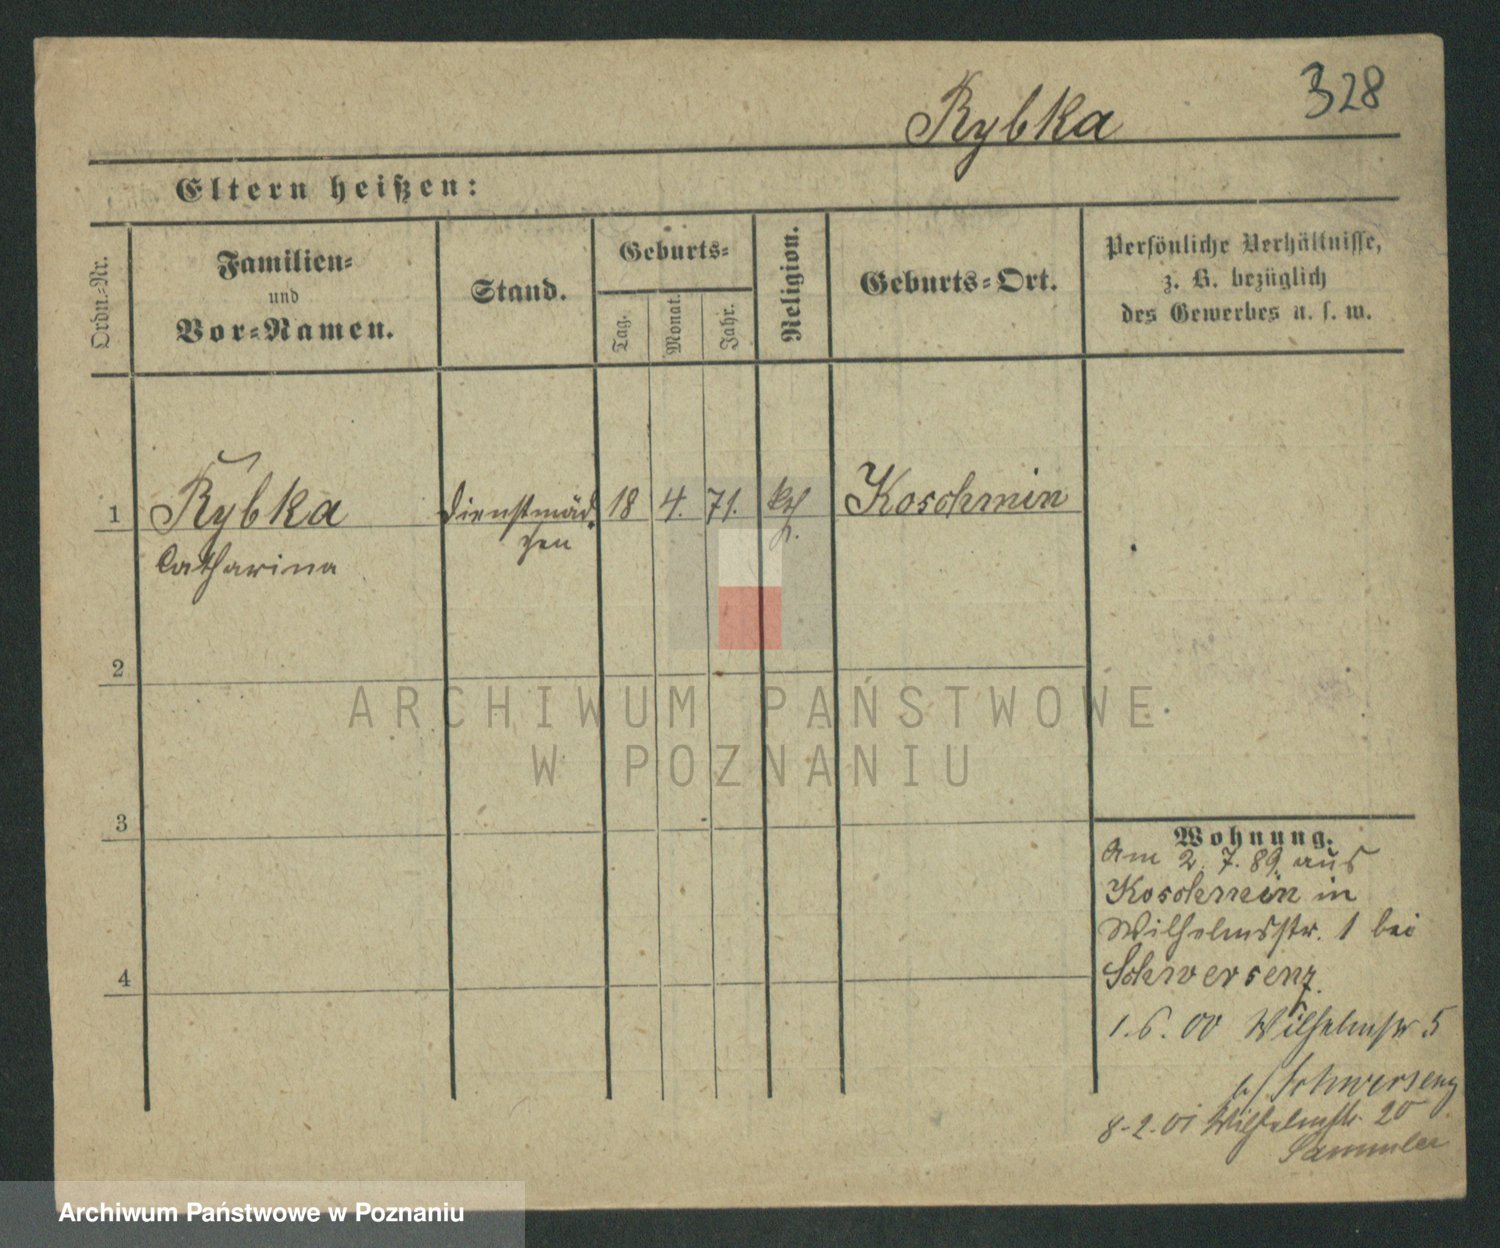 328
Rybka
Eltern heißen:
Ordn.-Nr.
Familien-
und
Vor-Namen.
Stand.
Geburts-
Tag.
Monat.
Jahr.
Religion.
Geburts-Ort.
Persönliche Verhältnisse,
z. B. bezüglich
des Gewerbes u. s. w.
1 Rybka Dienstmäd- 18 4. 71. kth. Koschmin
chen
Catharina
2
ARCHIWUM PAŃSTWOWE
W POZNANIU
3
Wohnung.
Am 2. 7. 89. aus
Koschmin in
Wilhelmsstr. 1 bei
Schwersenz.
4
1. 6. 00 Wilhelmstr 5
b/ Schwersenz
8-2.01 Wilhelmstr. 20
Sammler
Archiwum Państwowe w Poznaniu